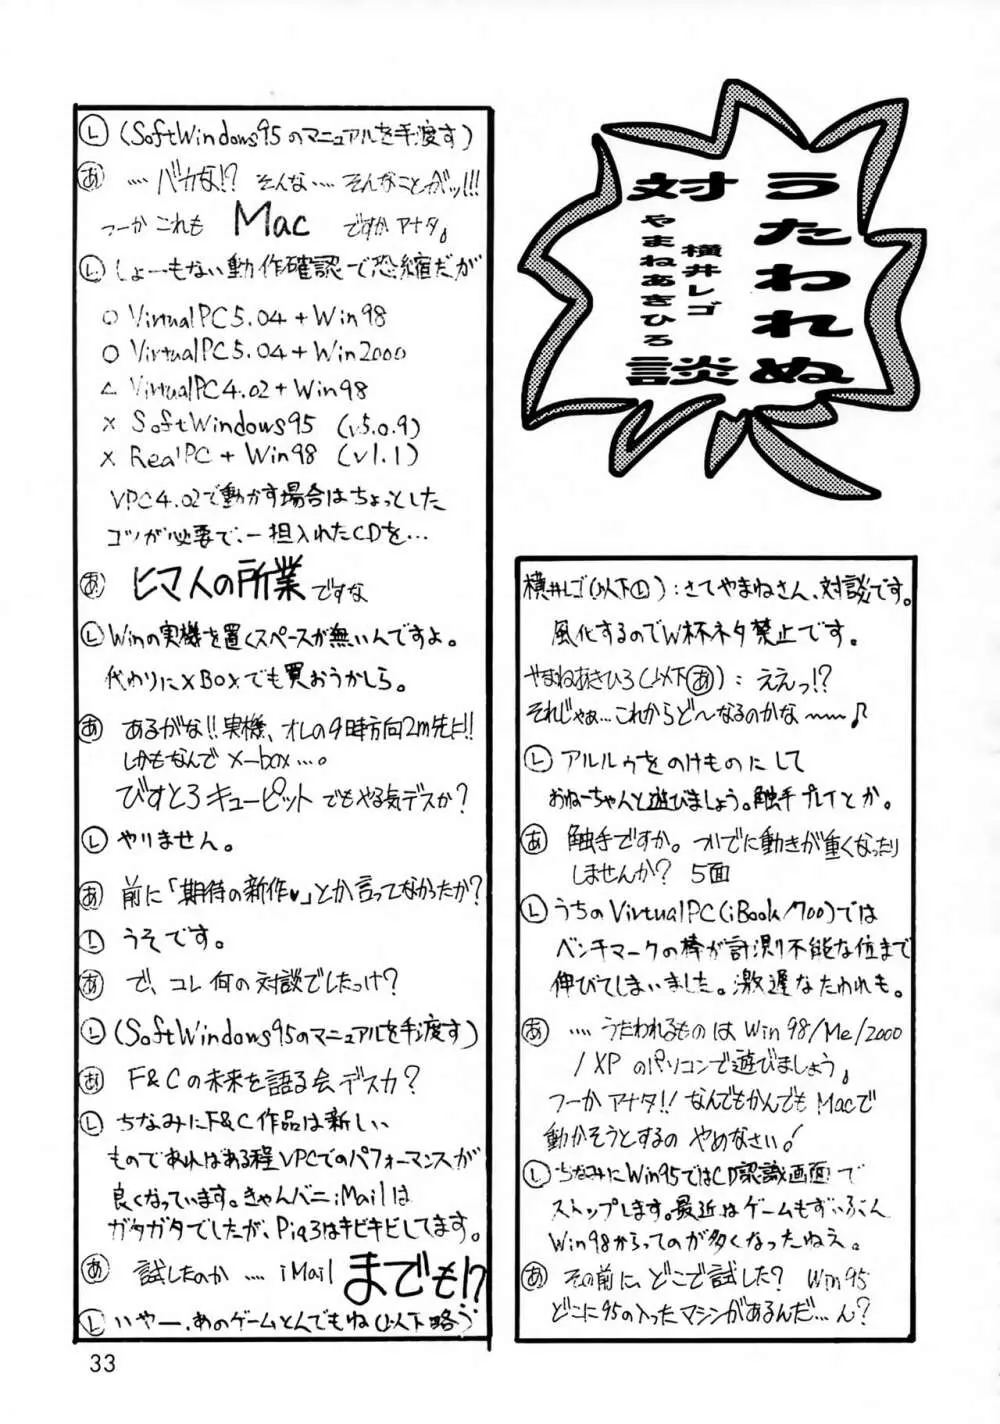 うたわれぬ
対談
横井レゴ
やまねあきひろ
横井レゴ(以下Ⓛ):さてやまねさん、対談です。
風化するのでW杯ネタ禁止です。
やまねあきひろ(以下あ):ええっ!?
それじゃぁ…これからど〜なるのかな〜〜♪
Ⓛ アルルゥをのけものにして
おねーちゃんと遊びましょう。触手プレイとか。
あ 触手ですか。ついでに動きが重くなったり
しませんか? 5面
Ⓛ うちのVirtualPC(iBook/700)では
ベンチマークの棒が計測不能な位まで
伸びてしまいました。激遅なたわれも。
あ ‥‥うたわれるものは Win98/Me/2000
/XP のパソコンで遊びましょう。
つーかアナタ!!なんでもかんでもMacで
動かそうとするの やめなさい!
Ⓛ ちなみにWin95ではCD認識画面で
ストップします。最近はゲームもずいぶん
Win98からってのが多くなったねえ。
あ その前に、どこで試した? Win95
どこに95の入ったマシンがあるんだ…ん?
Ⓛ (SoftWindows95のマニュアルを手渡す)
あ ‥‥バカな!? そんな‥‥そんなことがッ!!!
つーか これも Mac ですか アナタ。
Ⓛ しょーもない動作確認で恐縮だが
○ VirtualPC5.04+Win98
○ VirtualPC5.04+Win2000
△ VirtualPC4.02+Win98
× SoftWindows95 (v5.0.9)
× RealPC+Win98 (v1.1)
VPC4.02で動かす場合はちょっとした
コツが必要で、一担入れたCDを…
あ ヒマ人の所業ですな
Ⓛ Winの実機を置くスペースが無いんですよ。
代わりにXBoxでも買おうかしら。
あ あるがな!!実機、オレの9時方向2m先に!!
しかもなんで X-box…。
びすとろキューピット でもやる気デスか?
Ⓛ やりません。
あ 前に「期待の新作♥」とか言ってなかったか?
Ⓛ うそです。
あ で、コレ何の対談でしたっけ?
Ⓛ (SoftWindows95のマニュアルを手渡す)
あ F&Cの未来を語る会デスカ?
Ⓛ ちなみにF&C作品は新しい
ものであればある程VPCでのパフォーマンスが
良くなっています。きゃんバニiMailは
ガタガタでしたが、Pia3はキビキビしてます。
あ 試したのか ‥‥ iMail までも!?
Ⓛ いやー、あのゲームとんでもね(以下略)
33